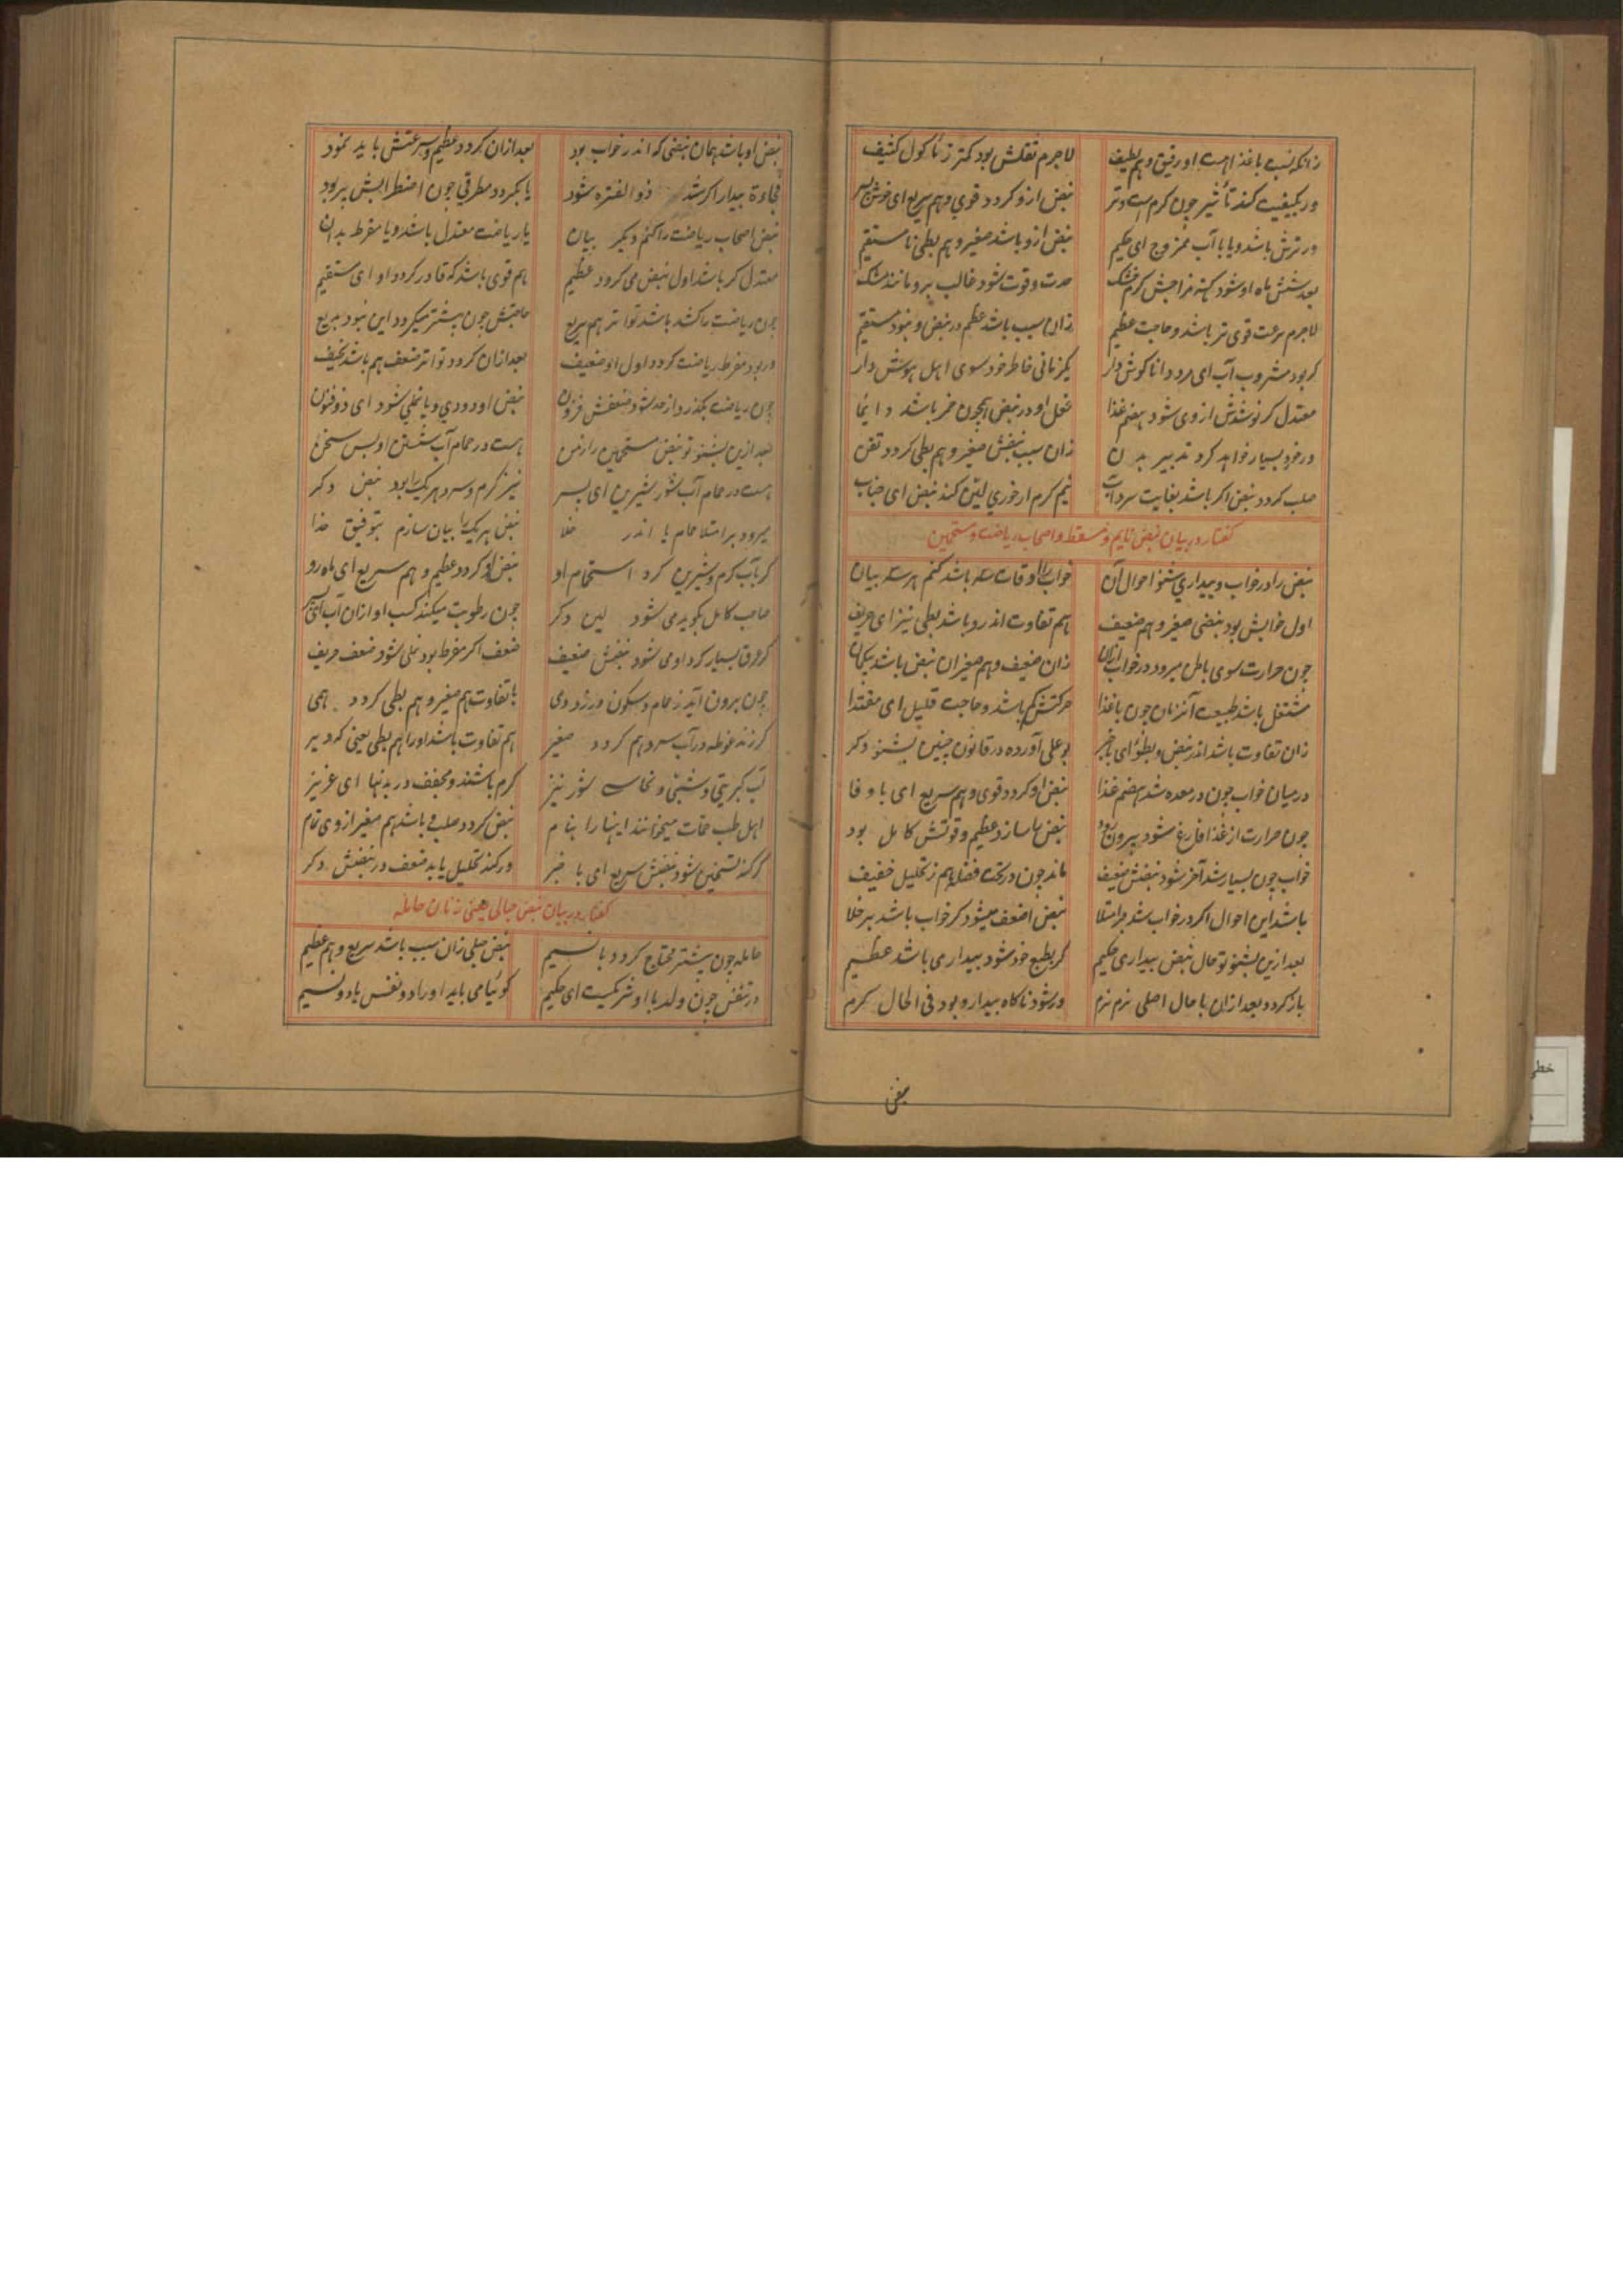 زانکه نسبت باغذا هست او رقیق و هم لطیف لاجرم ثقلش بود کمتر ز ماکول کثیف
ور بکیفیت کند تأثیر جون کرم است و تر نبض ازو کردد قوی و هم سریع ای خوش پسر
ور ترش باشد و یا با آب ممزوج ای حکیم نبض ازو باشد صغیر و هم بطی نا مستقیم
بعد شش ماه او شود کهنه مزاجش کرم خشک حدت و قوت شود غالب برو مانند مشک
لاجرم سرعت قوی تر باشد و حاجت عظیم زان سبب باشد عظم در نبض و نبود مستقیم
کر بود مشروب آب ای مرد دانا کوش دار یکزمانی خاطر خود سوی اهل هوش دار
معتدل کر نوشدش از وی شود هضم غذا فعل او در نبض همچون خمر باشد دایما
ور خورد بسیار خواهد کرد تدبیر بدن زان سبب نبضش صغیر و هم بطی کردد
صلب کردد نبض اکر باشد بغایت سرد آب نیم کرم ار خوری لین کند نبض ای جناب
کفتار در بیان نبض نایم و مستیقظ و اصحاب ریاضت و مستحمین
نبض را در خواب و بیداری شنو احوال آن خواب را اوقات سه باشد کنم هر سه بیان
اول خوابش بود نبضی صغیر و هم ضعیف هم تفاوت اندرو باشد بطی نیز ای حریف
جون حرارت سوی باطن میرود در خواب ازان زان ضعیف و هم صغیر ان نبض باشد بیکمان
مشتغل باشد طبیعت آنزمان جون باغذا حرکتش کم باشد و حاجت قلیل ای مقتدا
زان تفاوت باشد اندر نبض و بطؤ ای باخبر بوعلی آورده در قانون چنین بشنو دکر
در میان خواب جون در معده شد هضم غذا نبض او کردد قوی و هم سریع ای با وفا
جون حرارت از غذا فارغ شود بیرون رود نبض ها سازد عظیم و قوتش کامل بود
خواب جون بسیار شد آخر شود نبضش ضعیف ماند جون در تحت فضله هم ز تحلیل خفیف
باشد این احوال اکر در خواب شد بر امتلا نبض اضعف میشود کر خواب باشد بر خلا
بعد ازین بشنو تو حال نبض بیداری حکیم کر بطبع خود شود بیدار می باشد عظیم
باز کردد بعد ازان با حال اصلی نرم نرم ور شود ناکاه بیدار و بود فی الحال کرم
نبض
نبض او باشد همان نبضی که اندر خواب بود بعد ازان کردد عظیم و سرعتش باید نمود
فجاءة بیدار اکر شد ذو الفتره شود یا بکردد مطرقی جون اضطرابش بر بود
نبض اصحاب ریاضت را کنم دیکر بیان یا ریاضت معتدل باشد و یا مفرط بدان
معتدل کر باشد اول نبض می کردد عظیم هم قوی باشد که قادر کردد او ای مستقیم
جون ریاضت را کشد باشد تواتر هم سریع حاجتش جون بیشتر میکردد این نبود بدیع
ور بود مفرط ریاضت کردد اول او ضعیف بعد ازان کردد تواتر ضعف هم باشد نحیف
جون ریاضت بکذرد از حد شود ضعفش فزون نبض او دودی و یا نملی شود ای ذوفنون
بعد ازین بشنو تو نبض مستحمین را ز من هست در حمام آب شستن او بس سخن
هست در حمام آب شور شیرین ای پسر نیز کرم و سرد هر یک را بود نبض دکر
میرود بر امتلا حمام یا اندر خلا نبض هر یک را بیان سازم بتوفیق خدا
کر بآب کرم و شیرین کرد استحمام او نبض او کردد عظیم و هم سریع ای ماه رو
صاحب کامل بکوید می شود لین دکر جون رطوبت میکند کسب او ازان آب ای پسر
کر عرق بسیار کرد او می شود نبضش ضعیف ضعف اکر مفرط بود نملی شود ضعف حریف
جون برون آید ز حمام و سکون ورزد دمی با تفاوت هم صغیر و هم بطی کردد همی
کر زند غوطه در آب سرد هم کردد صغیر هم تفاوت باشد او را هم بطی یعنی که دیر
آب کبریتی و شبی و نحاست شور نیز کرم باشند و مجفف در بدنها ای عزیز
اهل طب حمات میخوانند اینها را بنام نبض کردد صلب و باشد هم صغیر از وی تمام
کر کند تسخین شود نبضش سریع ای با خبر ور کند تحلیل یابد ضعف در نبضش دکر
کفتار در بیان نبض حبالی یعنی زنان حامله
حامله جون بیشتر محتاج کردد با نسیم نبض حبلی زان سبب باشد سریع و هم عظیم
در تنفس جون ولد با او شریکست ای حکیم کوئیا می باید او را دو نفس با دو نسیم